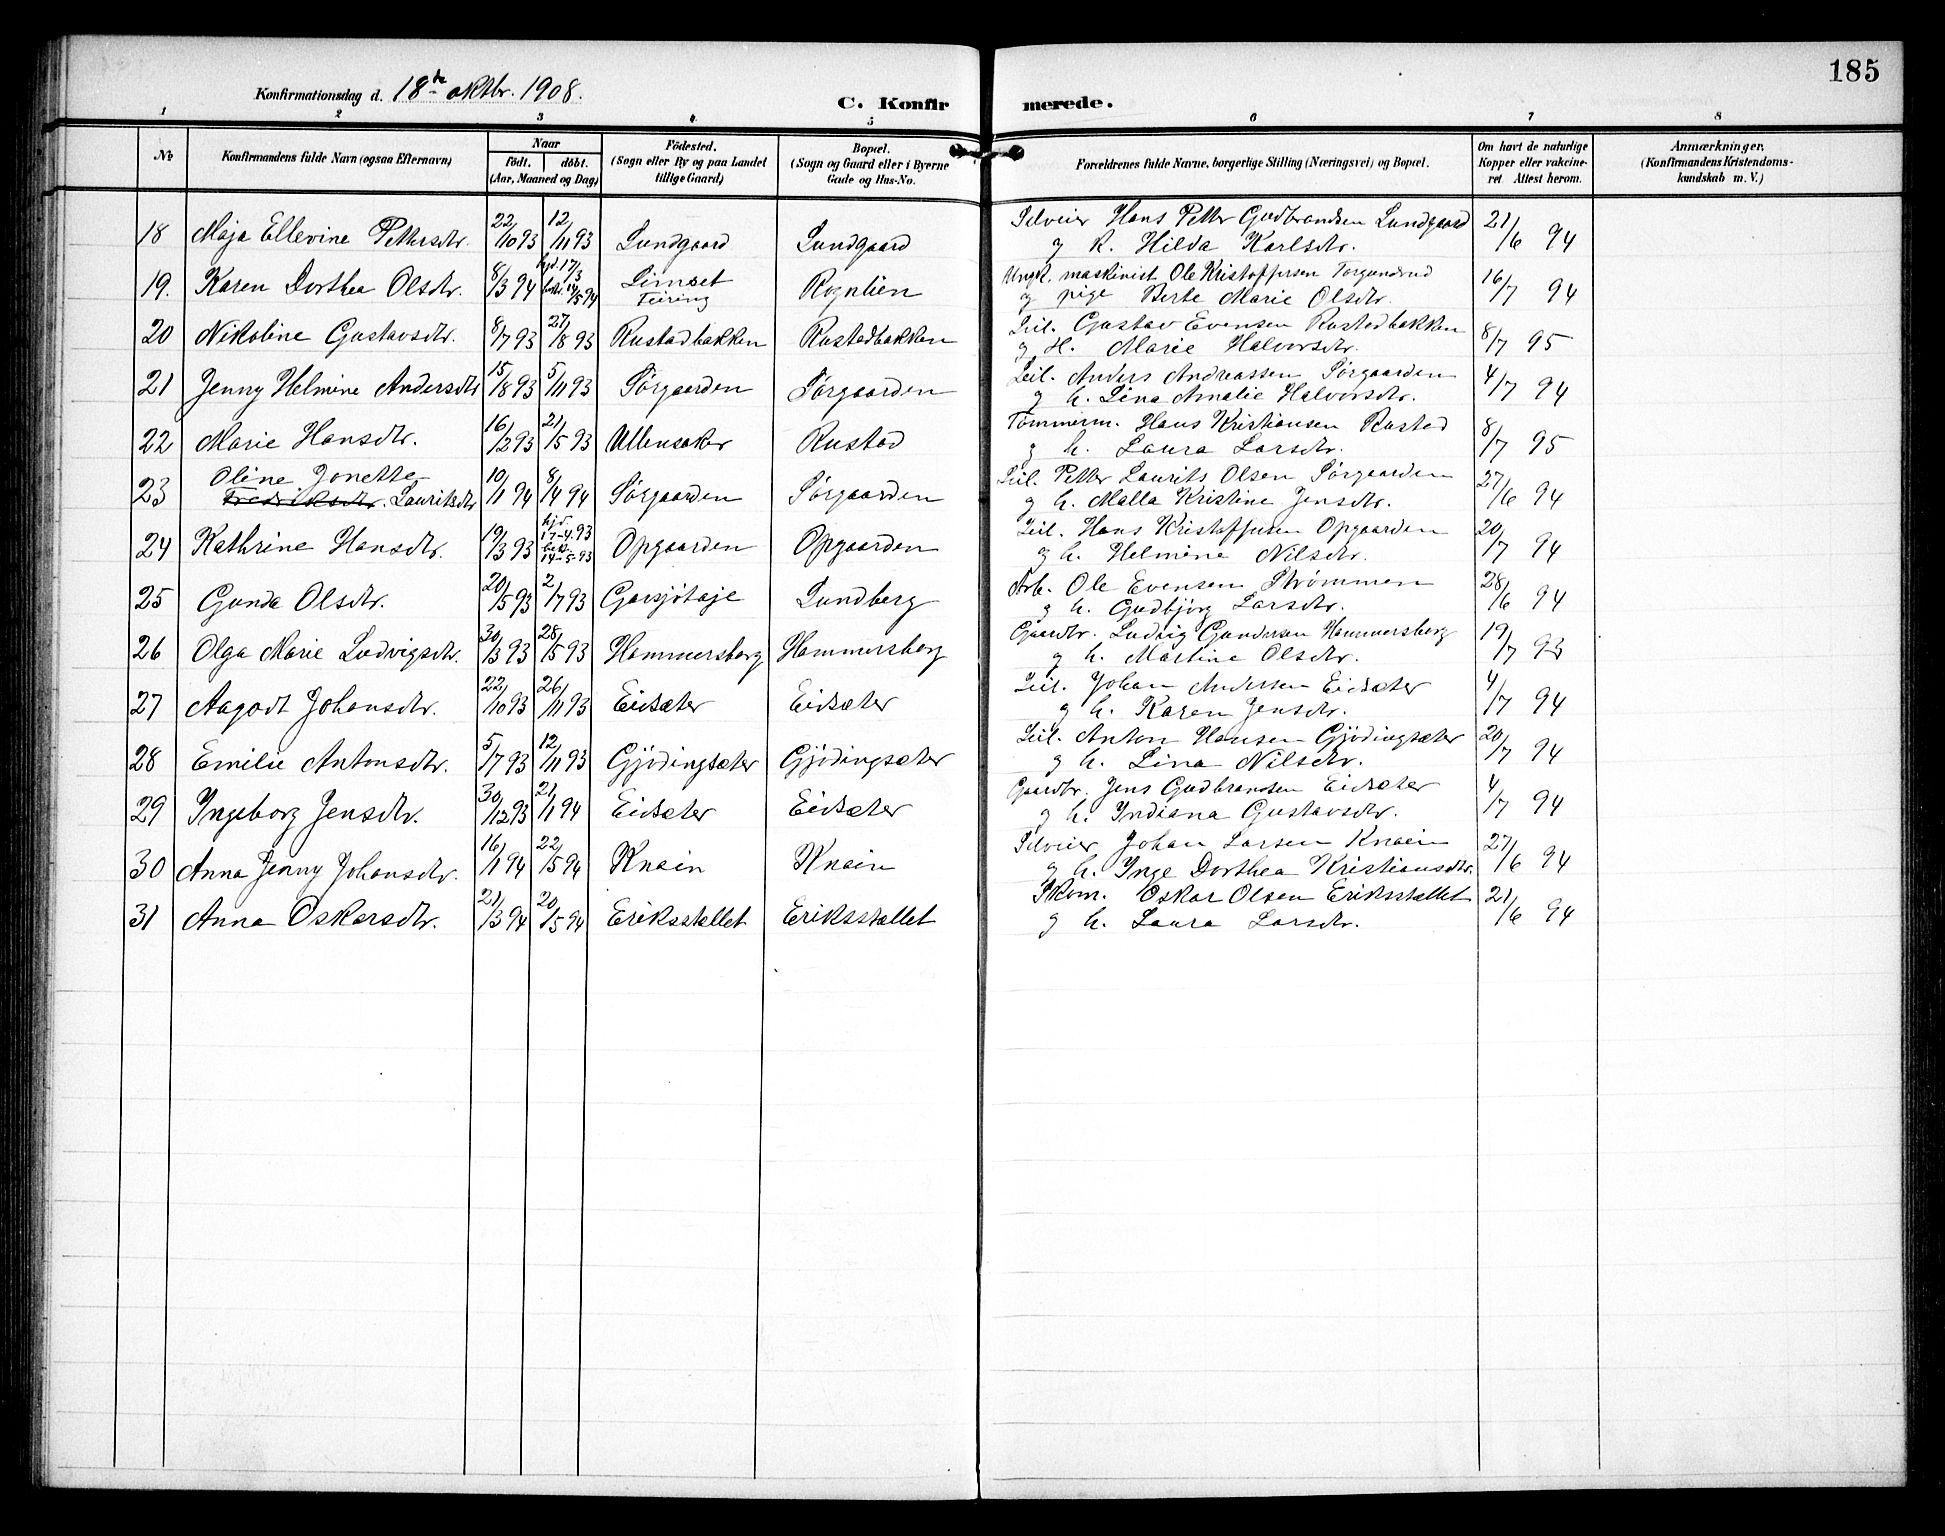 185
Konfirmationsdag d. 18de oktbr. 1908.
C. Konfirmerede.
1 2 3 4 5 6 7 8
No
Konfirmandens fulde Navn (ogsaa Efternavn)
Naar
født. døbt.
(Aar, Maaned og Dag)
Fødested.
(Sogn eller By og paa Landet
tillige Gaard)
Bopæl.
(Sogn og Gaard eller i Byerne
Gade og Hus-No.
Forældrenes fulde Navne, borgerlige Stilling (Næringsvei) og Bopæl.
Om havt de naturlige
Kopper eller vakcine-
ret Attest herom.
Anmærkninger.
(Konfirmandens Kristendoms-
kundskab m. V.)
18 Maja Ellevine Pettersdtr. 22/10 93 12/11 93 Lundgaard Lundgaard Selveier Hans Petter Gudbrandsen Lundgaard 21/6 94
g k. Hilda Karlsdtr.
19. Karen Dorthea Olsdtr. 8/3 94 hjd. 17/3 bekr. 14/5 94 Limset Rognlien Ungk. maskinist Ole Kristoffersen Torgundrud 16/7 94
Feiring g pige Berte Marie Olsdtr.
20 Nikoline Gustavsdtr. 8/7 93 27/8 93 Rustadbakken Rustadbakken Leil. Gustav Evensen Rustadbakken 8/7 95
g H. Marie Halvorsdtr.
21 Jenny Helmine Andersdtr 15/8 93 5/11 93 Sørgaarden Sørgaarden Leil. Anders Andreassen Sørgaarden 4/7 94
g h. Lina Amalie Halvorsdtr.
22 Marie Hansdtr. 16/2 93 21/5 93 Ullensaker Rustad Tømmerm. Hans Kristiansen Rustad 8/7 95
g h. Laura Larsdtr.
23 Oline Jonette 10/1 94 8/4 94 Sørgaarden Sørgaarden Leil. Petter Laurits Olsen Sørgaarden 27/6 94
Fredriksdtr. Lauritsdtr g h. Malla Kristine Jensdtr.
24 Kathrine Hansdtr. 19/3 93 hjd. 17-4.93 bekr. 14-5-93 Opgaarden Opgaarden Leil. Hans Kristoffersen Opgaarden 20/7 94
g h. Helmine Nilsdtr.
25 Gunda Olsdtr. 20/5 93 2/7 93 Garsjøtaje Lundberg Arb. Ole Evensen Strømmen 28/6 94
g h. Gudbjørg Larsdtr.
26 Olga Marie Ludvigsdtr. 30/3 93 28/5 93 Hammersberg Hammersberg Gaardbr. Ludvig Gundersen Hammersberg 19/7 93
g h. Martina Olsdtr.
27 Aagodt Johansdtr. 22/10 93 26/11 93 Eidsæter Eidsæter Leil. Johan Andersen Eidsæter 4/7 94
g h. Karen Jensdtr.
28 Emilie Antonsdtr. 5/7 93 12/11 93 Gjødingsæter Gjødingsæter Leil. Anton Hansen Gjødingsæter 20/7 94
g h. Lina Nilsdtr.
29 Ingeborg Jensdtr. 30/12 93 21/1 94 Eidsæter Eidsæter Gaardbr. Jens Gudbrandsen Eidsæter 4/7 94
g h. Indiana Gustavsdtr.
30 Anna Jenny Johansdtr. 16/1 94 22/5 94 Knain Knain Selveier Johan Larsen Knain 27/6 94
g h. Inge Dorthea Kristiansdtr.
31 Anna Oskarsdtr. 21/3 94 20/5 94 Eriksstallet Eriksstallet Skom. Oskar Olsen Eriksstallet 21/6 94
g h. Laura Larsdtr.